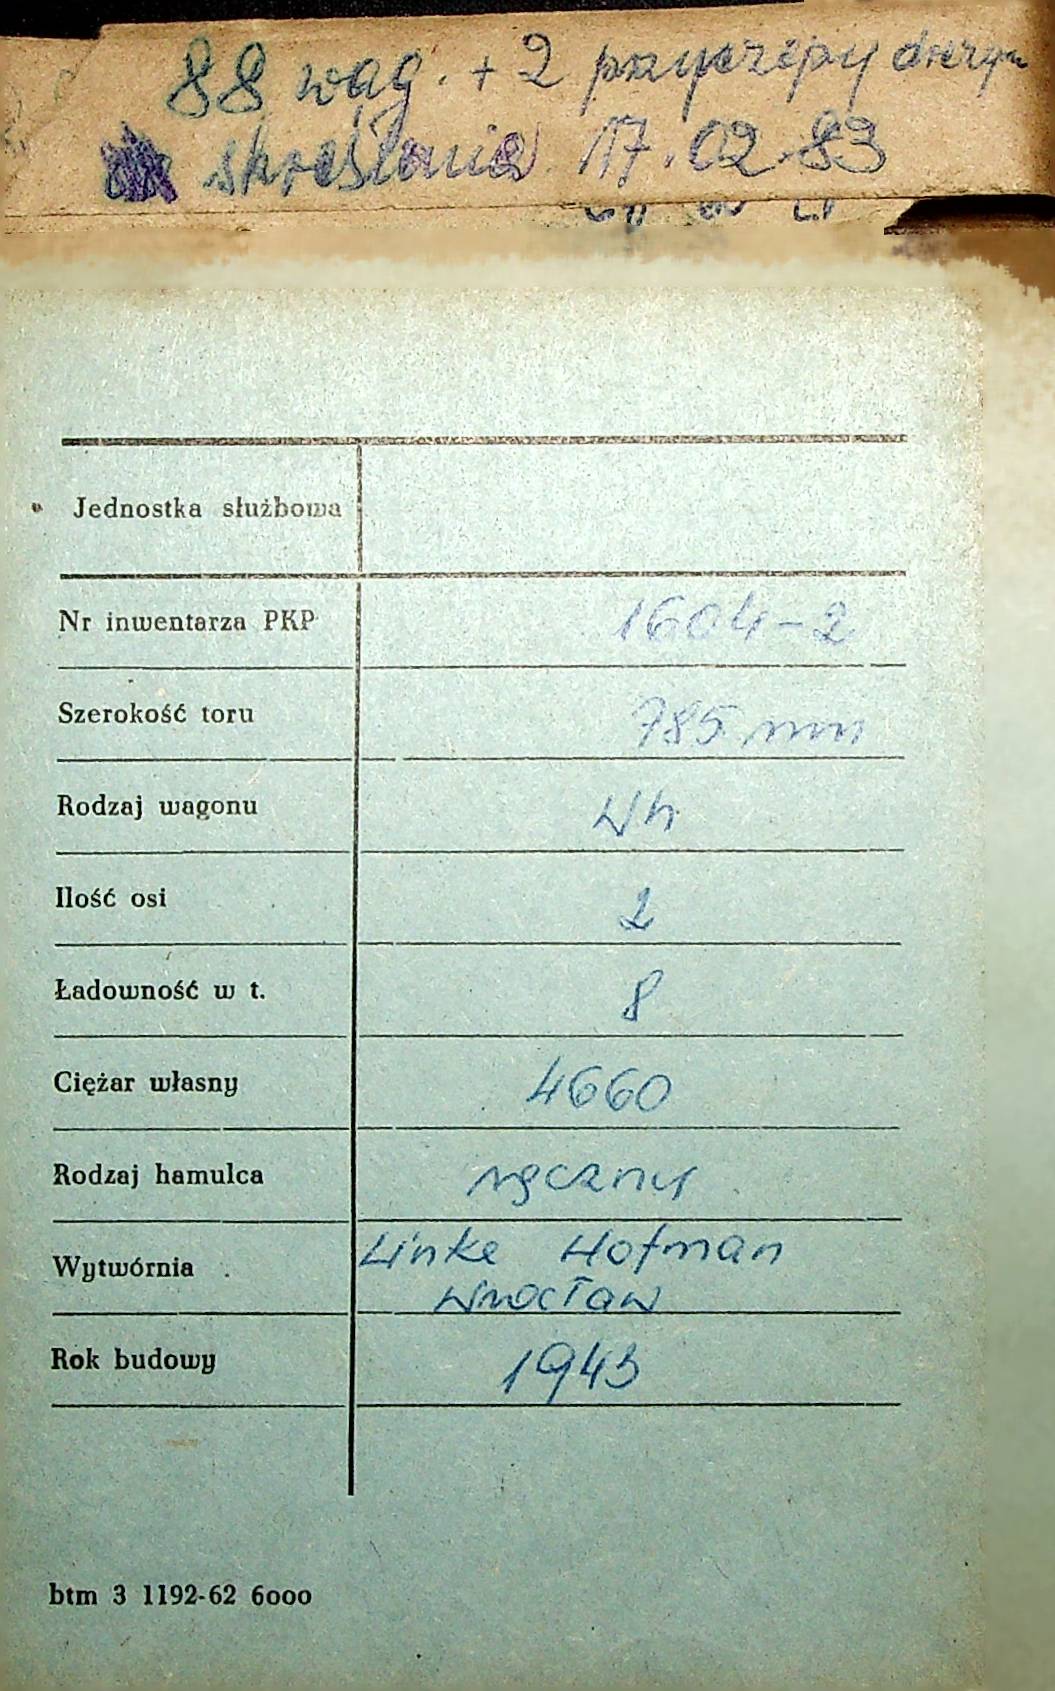 88 wag. + 2 przyczepy drezyn
skreślania 17.02.83
Jednostka służbowa
Nr inwentarza PKP 1604-2
Szerokość toru 785 mm
Rodzaj wagonu Wh
Ilość osi 2
Ładowność w t. 8
Ciężar własny 4660
Rodzaj hamulca ręczny
Wytwórnia Linke Hofman
Wrocław
Rok budowy 1943
btm 3 1192-62 6000